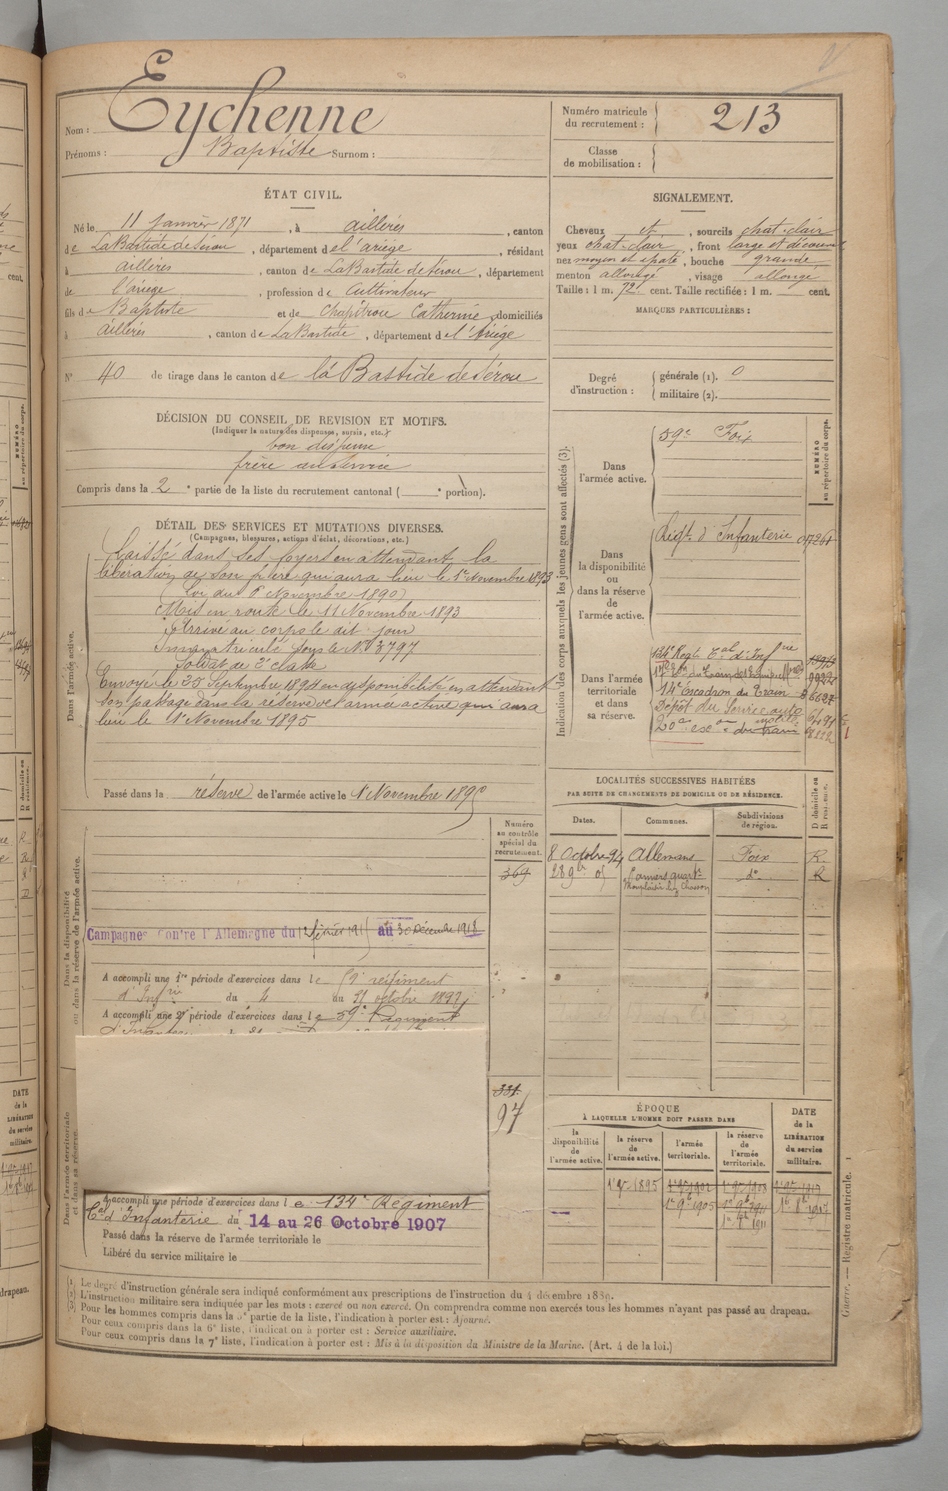 Nom : Eychenne
Prénoms : Baptiste Surnom :
Numéro matricule du recrutement : 213
Classe de mobilisation :
ÉTAT CIVIL.
Né le 11 Janvier 1871, à aillères, canton
de LaBastide de Sérou, département de l'ariège, résidant
à aillères, canton de LaBastide de Sérou, département
de l'ariège, profession de Cultivateur
fils de Baptiste et de Chapitrou Catherine, domiciliés
à aillères, canton de LaBastide, département de l'Ariège
N° 40 de tirage dans le canton de la Bastide de Sérou
DÉCISION DU CONSEIL DE REVISION ET MOTIFS.
(Indiquer la nature des dispenses, sursis, etc.)
bon dispensé
frère au service
Compris dans la 2e partie de la liste du recrutement cantonal ( e portion).
DÉTAIL DES SERVICES ET MUTATIONS DIVERSES.
(Campagnes, blessures, actions d'éclat, décorations, etc.)
Laissé dans ses foyers en attendant la
libération de son frère qui aura lieu le 1er Novembre 1893
(Loi du 6 Novembre 1890)
Mis en route le 11 Novembre 1893
Arrivé au corps le dit jour
Immatriculé sous le No 3797
Soldat de 2e classe
Envoyé le 25 Septembre 1894 en disponibilité en attendant
son passage dans la réserve de l'armée active qui aura
lieu le 1er Novembre 1895
Dans l'armée active.
Passé dans la réserve de l'armée active le 1 Novembre 1895
Numéro au contrôle spécial du recrutement.
364
Dans la disponibilité ou dans la réserve de l'armée active.
Campagne contre l'Allemagne du 12 février 191 au 30 décembre 1918
A accompli une 1re période d'exercices dans le 59e régiment
d'Infrie du 4 au 31 octobre 189
A accompli une 2e période d'exercices dans le 59e Régiment
331
97
Dans l'armée territoriale et dans sa réserve.
A accompli une période d'exercices dans le 134e Régiment
Cal d'Infanterie du 14 au 26 Octobre 1907
Passé dans la réserve de l'armée territoriale le
Libéré du service militaire le
SIGNALEMENT.
Cheveux et, sourcils chat-clair
yeux chat-clair, front large et découvert
nez moyen et épaté, bouche grande
menton allongé, visage allongé
Taille : 1 m. 72 cent. Taille rectifiée : 1 m. cent.
MARQUES PARTICULIÈRES :
Degré d'instruction : générale (1). 0
militaire (2).
Indication des corps auxquels les jeunes gens sont affectés (3).
NUMÉRO au répertoire du corps.
Dans l'armée active.
59e Foix
Dans la disponibilité ou dans la réserve de l'armée active.
Régt. d'Infanterie
Dans l'armée territoriale et dans sa réserve.
134e Regt Cal d'Infrie
14e Escadron du Train
Dépôt du Service auto
20e esc on du train
LOCALITÉS SUCCESSIVES HABITÉES
PAR SUITE DE CHANGEMENTS DE DOMICILE OU DE RÉSIDENCE.
Dates. Communes. Subdivisions de région. D domicile ou R résidence.
8 Octobre 94 Allemans Foix R.
28 9bre 05 Pamiers do R
ÉPOQUE
À LAQUELLE L'HOMME DOIT PASSER DANS
la disponibilité de l'armée active.
la réserve de l'armée active.
l'armée territoriale.
la réserve de l'armée territoriale.
DATE de la LIBÉRATION du service militaire.
1er 9bre 1895
1er 9bre 1905
Guerre. — Registre matricule. 1
(1) Le degré d'instruction générale sera indiqué conformément aux prescriptions de l'instruction du 4 décembre 1889.
(2) L'instruction militaire sera indiquée par les mots : exercé ou non exercé. On comprendra comme non exercés tous les hommes n'ayant pas passé au drapeau.
(3) Pour les hommes compris dans la 5e partie de la liste, l'indication à porter est : Ajourné.
Pour ceux compris dans la 6e liste, l'indication à porter est : Service auxiliaire.
Pour ceux compris dans la 7e liste, l'indication à porter est : Mis à la disposition du Ministre de la Marine. (Art. 4 de la loi.)